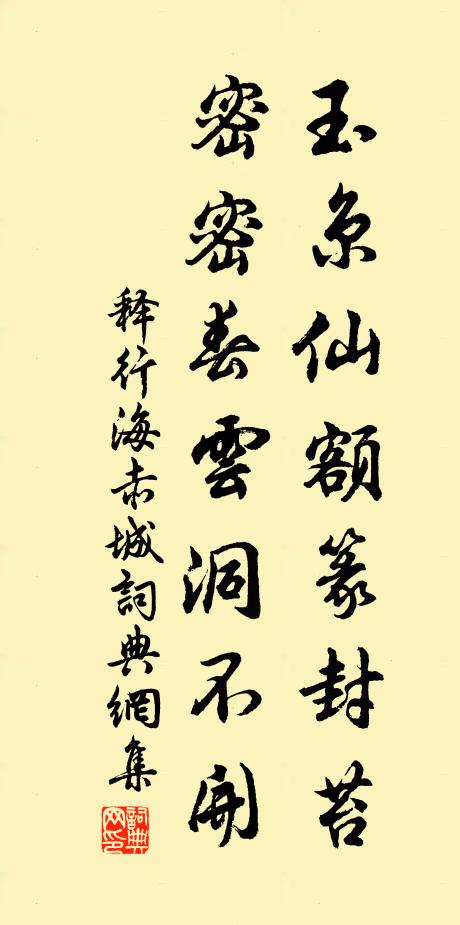 玉京仙額篆封苔
密密春雲洞不開
释行海赤城詞典網集
詞典网印